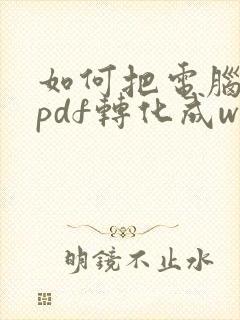 如何把電腦
pdf轉化成w
明鏡不止水